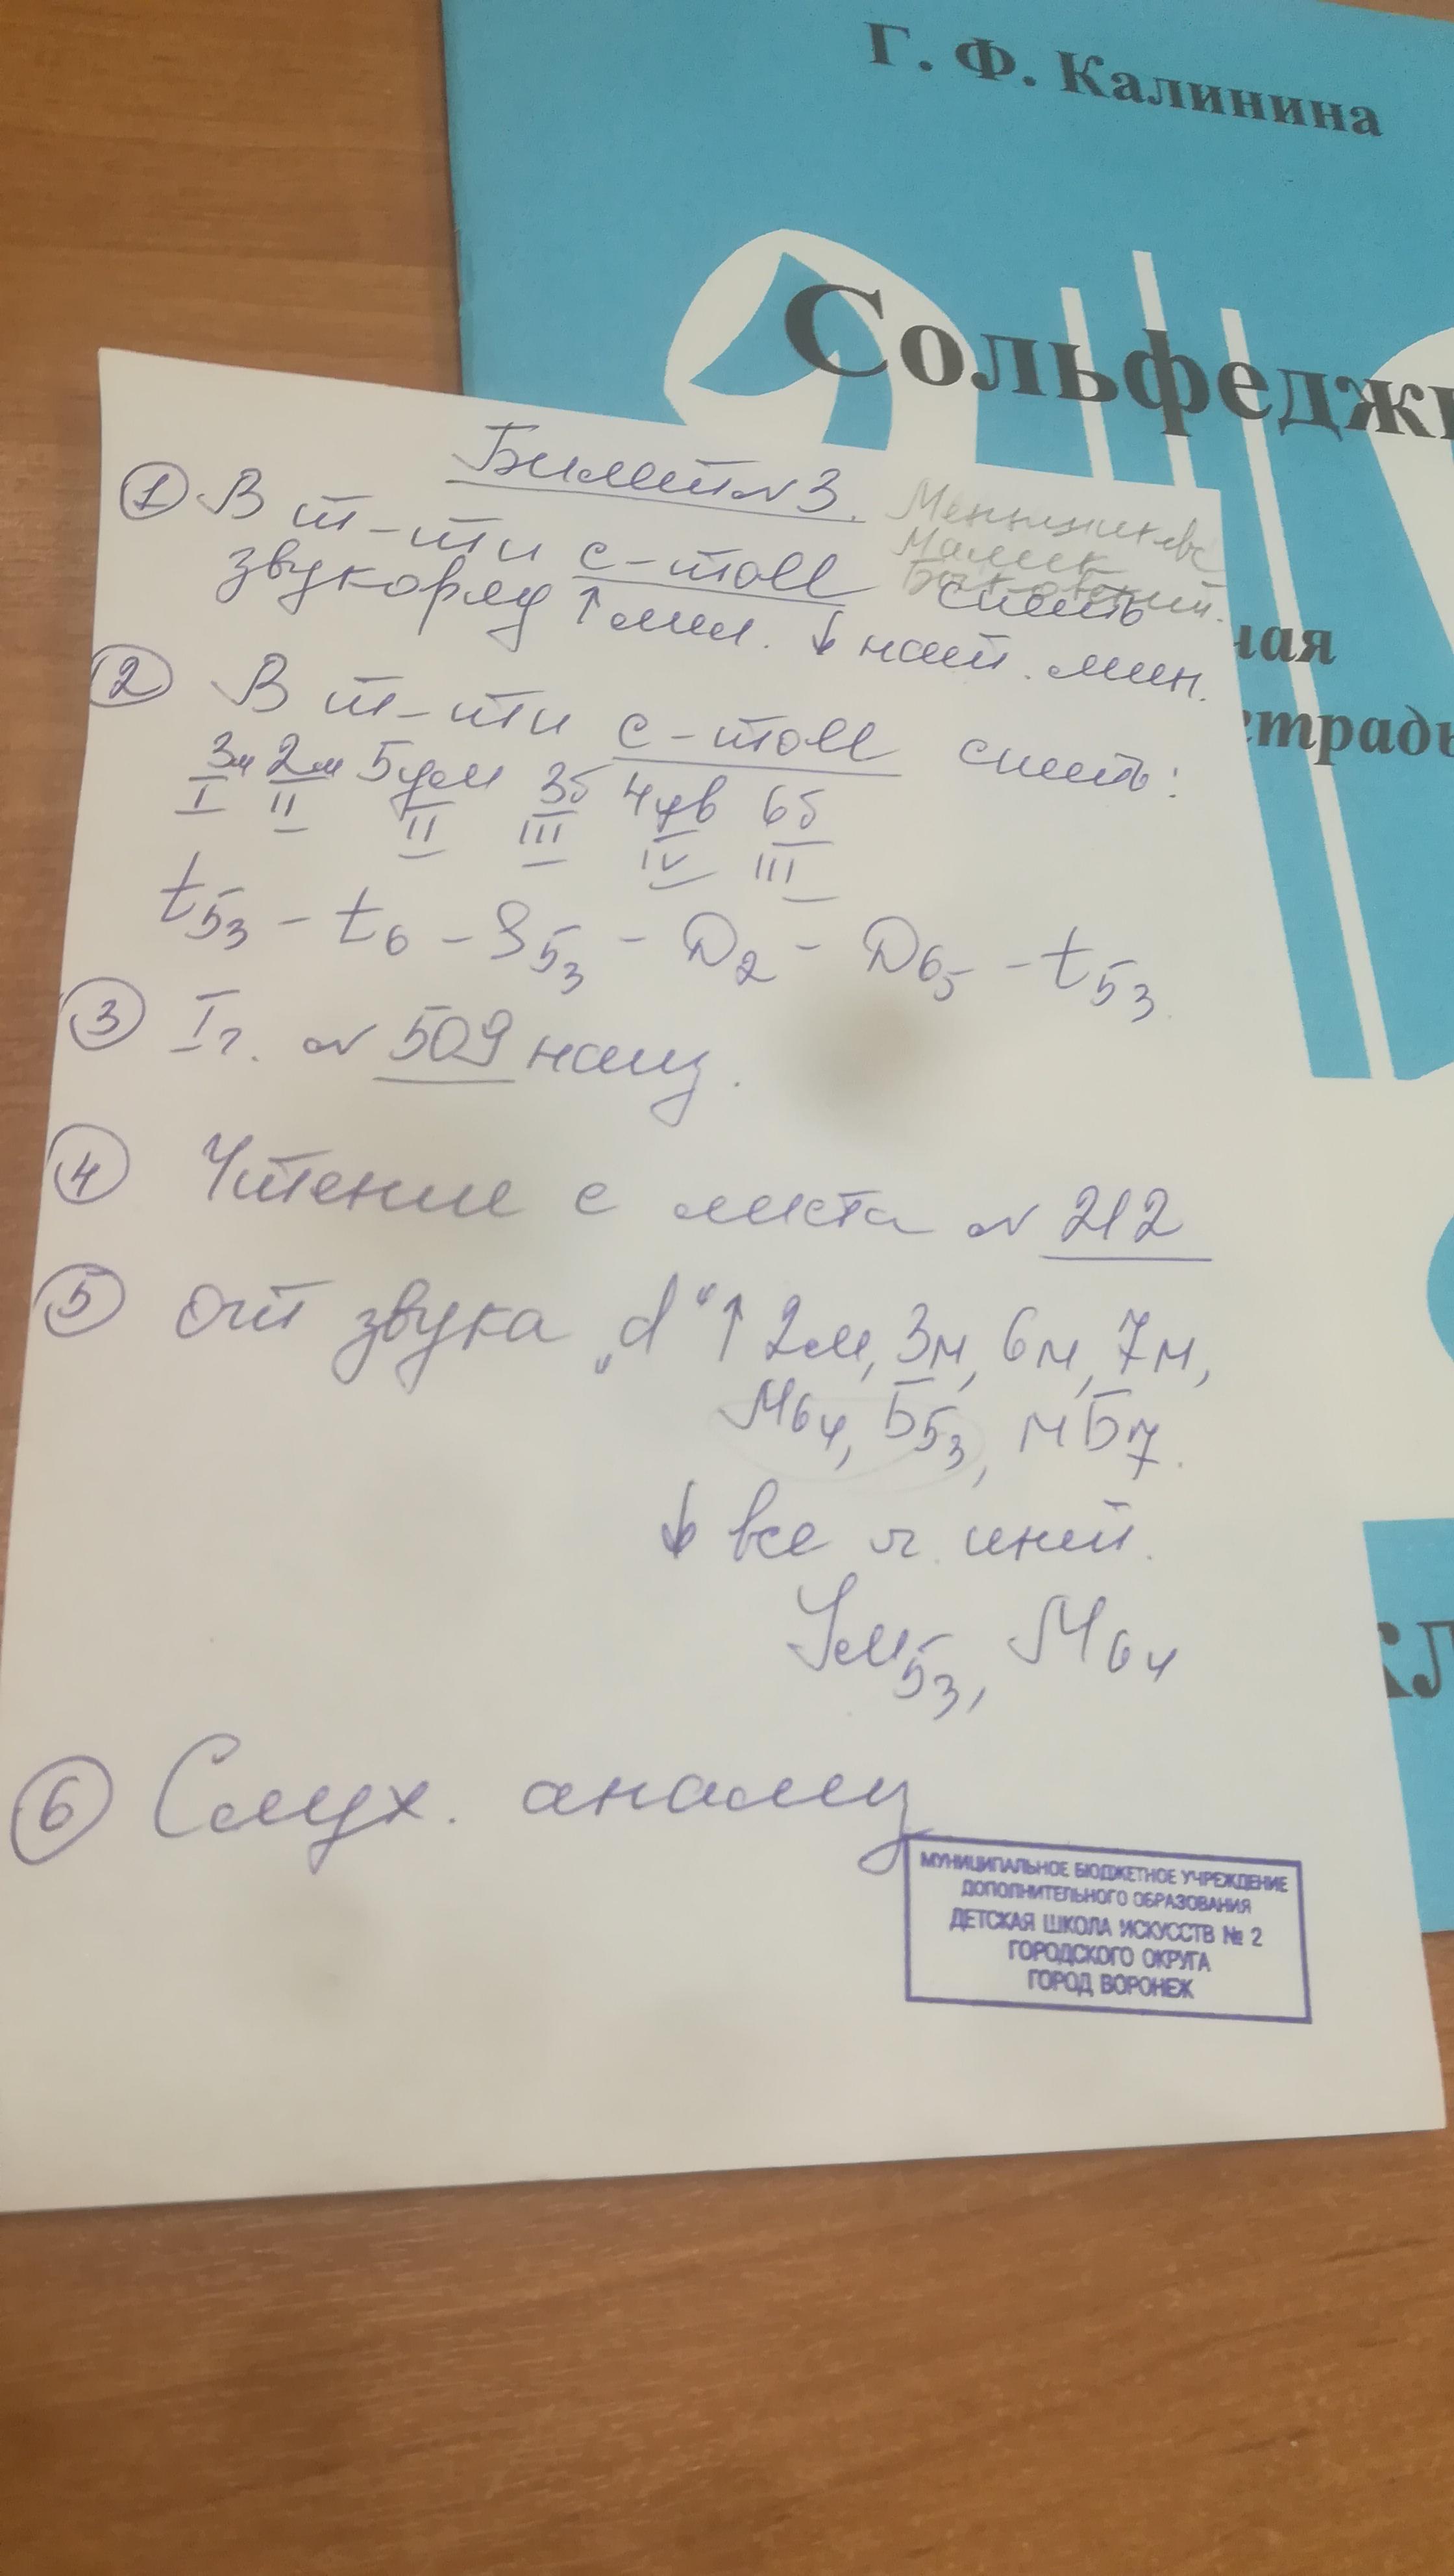 Г. Ф. Калинина
Сольфеджи
ная
тетрадь
кл
Билет №3.
① В т-ти c-moll спеть
звукоряд ↑мел. ↓ нат. мин.
② В т-ти c-moll спеть:
3м 2м 5ум 3б 4ув 6б
I II II III IV III
t53 - t6 - S53 - D2 - D65 - t53
③ Iг. № 509 наиз.
④ Чтение с листа № 212
⑤ От звука „d“ ↑ 2м, 3м, 6м, 7м,
М64, Б53, мБ7.
↓ все ч. инт.
Ум53, М64
⑥ Слух. анализ
МУНИЦИПАЛЬНОЕ БЮДЖЕТНОЕ УЧРЕЖДЕНИЕ
ДОПОЛНИТЕЛЬНОГО ОБРАЗОВАНИЯ
ДЕТСКАЯ ШКОЛА ИСКУССТВ № 2
ГОРОДСКОГО ОКРУГА
ГОРОД ВОРОНЕЖ